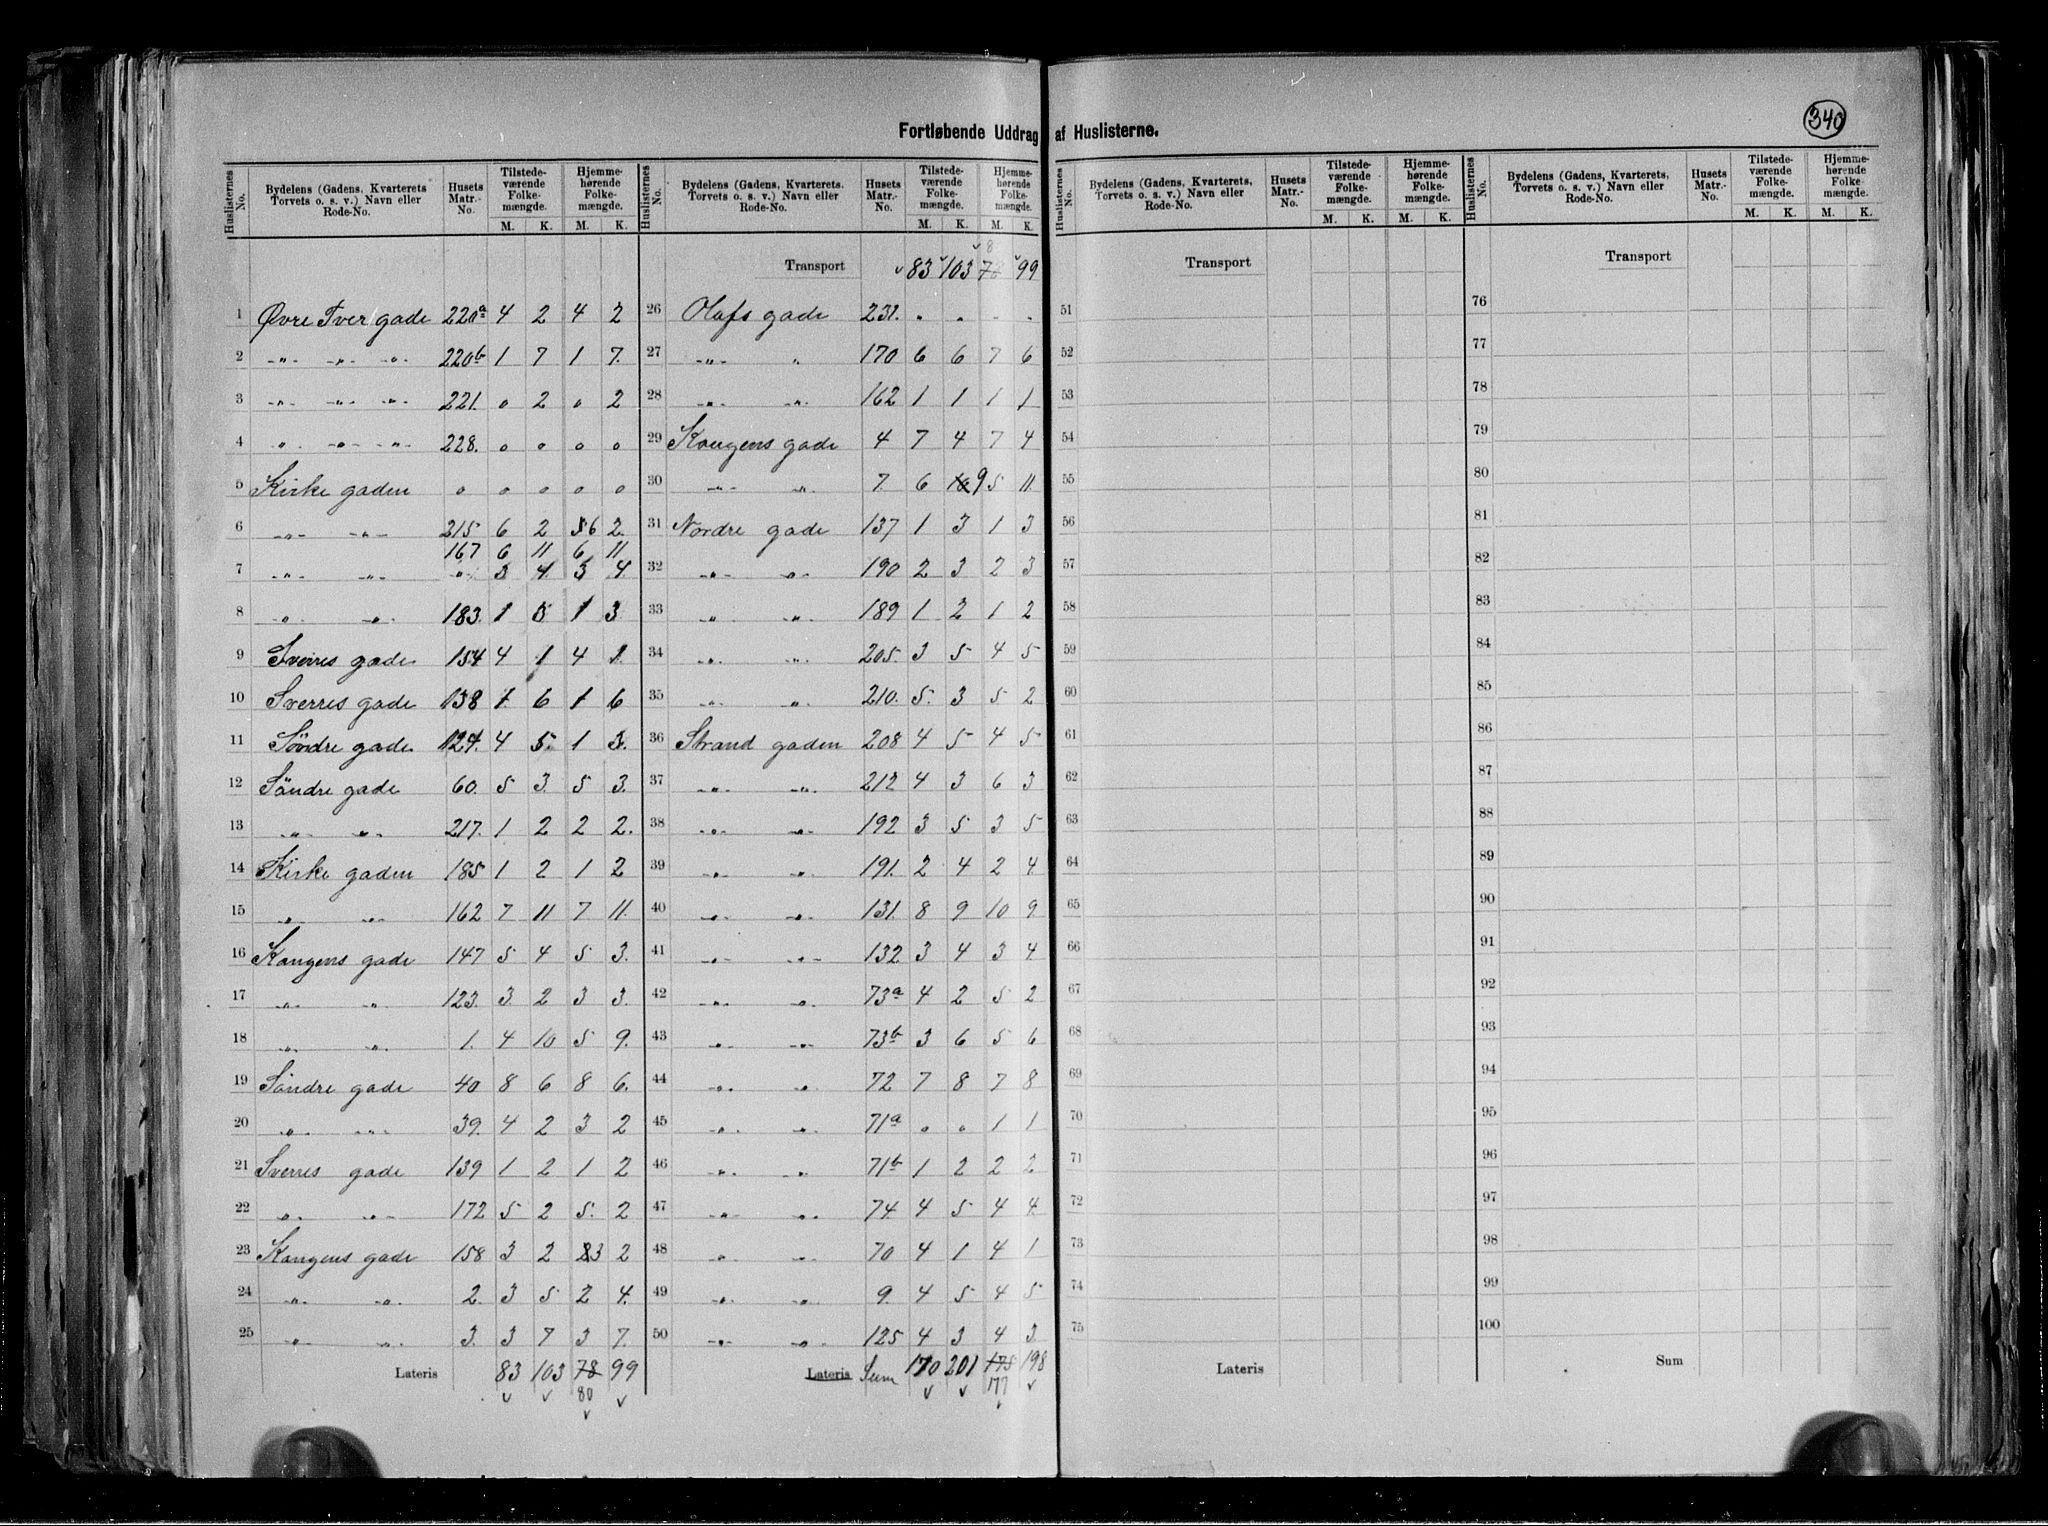 340
Fortløbende Uddrag af Huslisterne.
Huslisternes No. Bydelens (Gadens, Kvarterets Torvets o. s. v.) Navn eller Rode-No. Husets Matr.-No. Tilstede-værende Folke-mængde. Hjemme-hørende Folke-mængde.
M. K. M. K.
1 Øvre Tver gade 220a 4 2 4 2
2 -"- -"- -"- 220b 1 7 1 7.
3 -"- -"- -"- 221. 0 2 0 2
4 " -"- -"- 228. 0 0 0 0
5 Kirke gaden 0 0 0 0 0
6 -"- -"- 215 6 2 5 6 2.
167 6 11 6 11
7 -"- -"- -"- 3 4. 3 4.
8 -"- -"- 183. 1 3 1 3
9 Sverres gade. 154 4 1 4 1.
10 Sverres gade 138 1. 6 1 6
11 Søndre gade 124. 4 5. 1 3.
12 Søndre gade 60. 5 3. 5 3.
13 -"- -"- 217. 1 2 2 2.
14 Kirke gaden 185 1 2 1 2
15 -"- -"- 162 7 11 7 11.
16 Kongens gade 147 5 4 5 3.
17 -"- -"- 123. 3. 2 3 3.
18 -"- -"- 1. 4 10 5 9.
19 Søndre gade 40 8 6 8 6.
20 -"- -"- 39. 4 2 3 2
21 Sverres gade 139 1 2 1 2
22 -"- -"- 172 5 2 5. 2
23 Kongens gade 158 3 2 2 3 2
24 -"- -"- 2. 3 5 2 4.
25 -"- -"- 3. 3 7 3 7.
Lateris 83 103 78 99
80
Huslisternes No. Bydelens (Gadens, Kvarterets. Torvets o. s. v.) Navn eller Rode-No. Husets Matr.-No. Tilstede-værende Folke-mængde. Hjemme-hørende Folke-mængde.
M. K. M. K.
Transport 83 103 78 99
26 Olafs gade 231. " " " "
27 -"- " 170 6 6 7 6
28 -"- -"- 162 1 1 1 1
29 Kongens gade 4 7 4 7 4
30 -"- -"- 7. 6 10 9 5 11.
31 Nordre gade 137 1 3 1 3
32 -"- -"- 190 2 3 2 3
33 -"- -"- 189 1 2 1 2
34 -"- -"- 205. 3 5 4 5
35 -"- -"- 210. 5. 3 5 2
36 Strand gaden 208 4 5 4 5
37 -"- -"- 212 4 3 6 3
38 -"- -"- 192 3 5 3 5
39 -"- -"- 191. 2 4 2 4
40 -"- -"- 131. 8 9 10 9
41 -"- -"- 132 3 4 3 4
42 -"- -"- 73a 4 2 5 2
43 -"- -"- 73b 3 6 5 6
44 -"- -"- 72 7 8 7 8
45 -"- -"- 71a 0 0 1 1
46 -"- -"- 71b 1 2 2 2
47 -"- -"- 74. 4 5 4 4.
48 -"- -"- 70 4 1 4 1
49 -"- -"- 9. 4 5 4 5
50 -"- -"- 125 4 3 4 3
Lateris Sum 170 201 175 198
177
Huslisternes No. Bydelens (Gadens, Kvarterets, Torvets o. s. v.) Navn eller Rode-No. Husets Matr.-No. Tilstede-værende Folke-mængde. Hjemme-hørende Folke-mængde.
M. K. M. K.
Transport
51
52
53
54
55
56
57
58
59
60
61
62
63
64
65
66
67
68
69
70
71
72
73
74
75
Lateris
Huslisternes No. Bydelens (Gadens, Kvarterets, Torvets o. s. v.) Navn eller Rode-No. Husets Matr.-No. Tilstede-værende Folke-mængde. Hjemme-hørende Folke-mængde.
M. K. M. K.
Transport
76
77
78
79
80
81
82
83
84
85
86
87
88
89
90
91
92
93
94
95
96
97
98
99
100
Sum